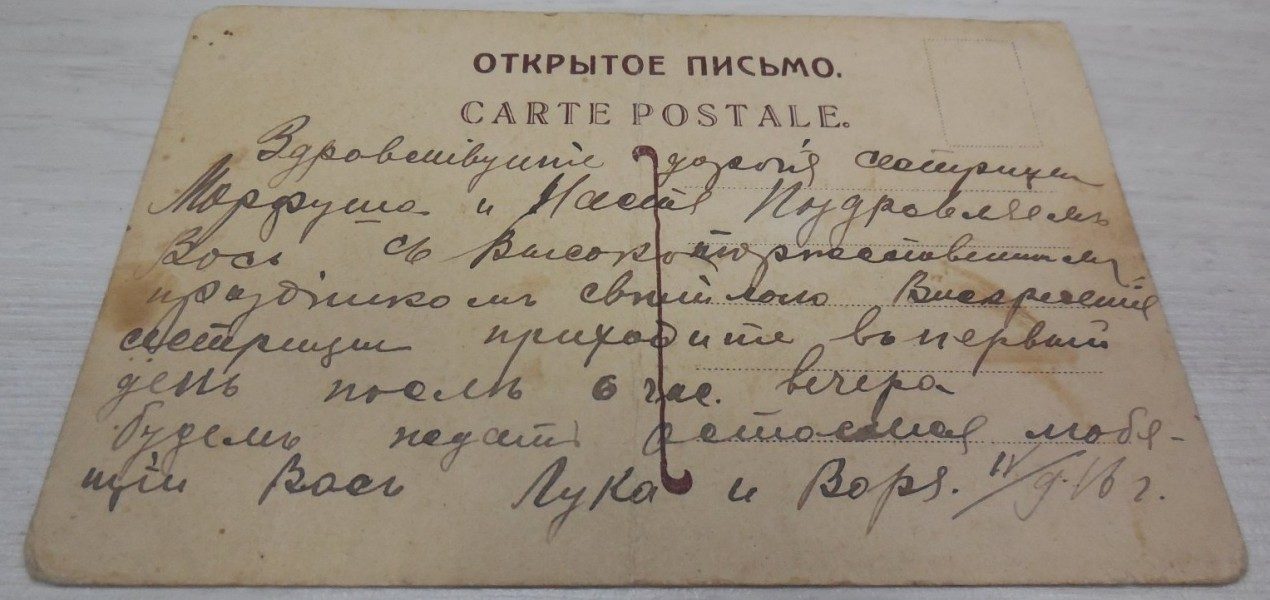 ОТКРЫТОЕ ПИСЬМО.
CARTE POSTALE.
Здровствівуите дорогія сестрицы
Марфуша и Настя Поздровляемъ
Вось съ Высокоторжественнымъ
праздникомъ свѣтлого Воскресенія
сестрицы приходите въ первый
день послѣ 6 час. вечера
будемъ ждать остоемся любя-
щіи Вось Лука и Воря.